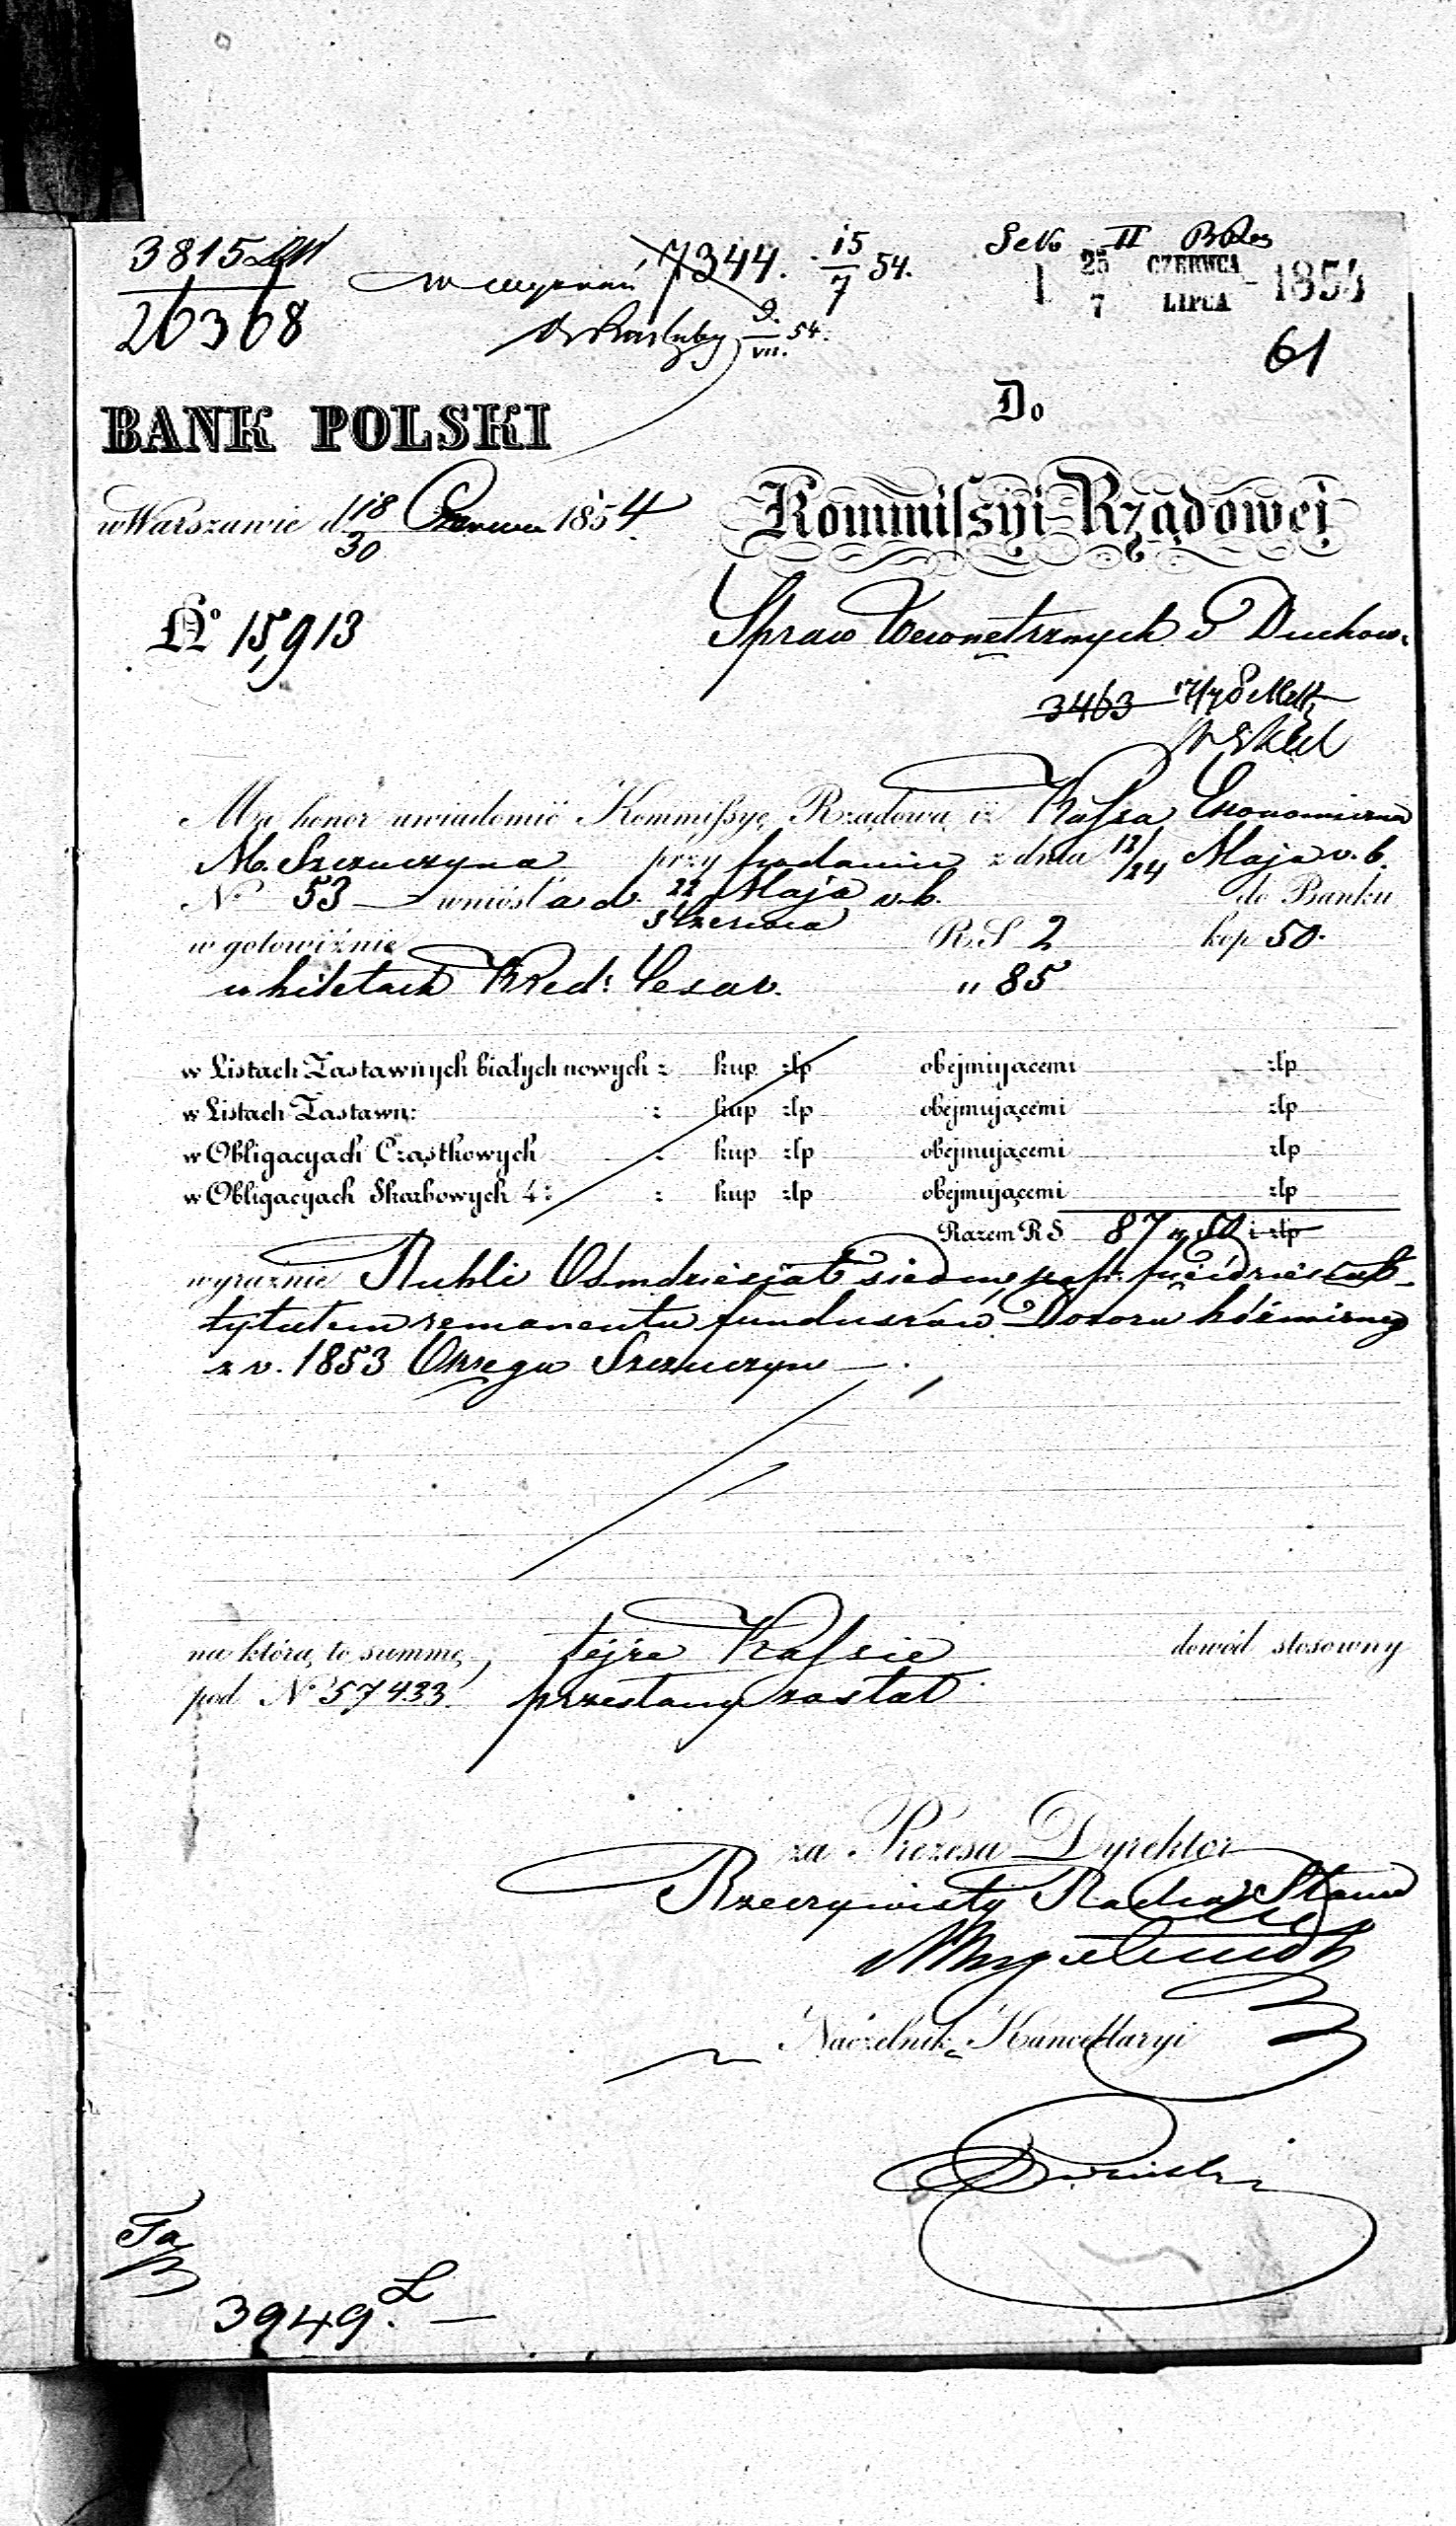 3815
26368
7344. 15/7 54.
9/VII. 54.
Sek II
1 25/7 CZERWCA/LIPCA 1854
61
BANK POLSKI
Do
Kommissyi Rządowej
w Warszawie d 18/30 Czerwca 1854
No 15,913
Spraw Wewnętrznych i Duchow.
3463
Ma honor uwiadomić Kommissyę Rządową iż Kassa Ekonomiczna
M. Szczuczyna przy podaniu z dnia 12/24 Maja r. b.
No 53 wniósła d. 22 Maja/3 Czerwca r. b. do Banku
w gotowiźnie R.S 2 kop 50.
w biletach Kred: Cesar. " 85
w Listach Zastawnych białych nowych : kup złp obejmującemi złp
w Listach Zastawn: : kup złp obejmującemi złp
w Obligacyach Cząstkowych : kup złp obejmującemi złp
w Obligacyach Skarbowych 4: : kup złp obejmującemi złp
Razem R S. 87 k 50 i złp
wyraźnie Rubli Ośmdziesiąt siedm kop: pięćdziesiąt
tytułem remanentu funduszów Dozoru bóżniczneg
z r. 1853 Okręgu Szczuczyn
na którą to summę, tejże Kassie dowód stosowny
pod No 57433. przesłany został
za Prezesa Dyrektor
Rzeczywisty Radca Stanu
Naczelnik Kancellaryi
3949.